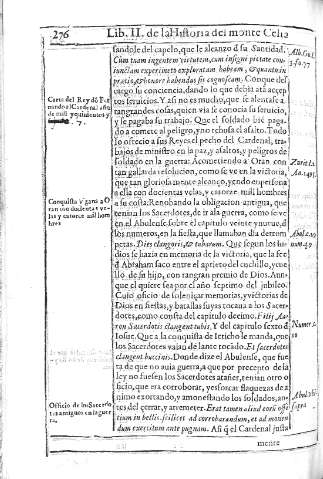 276
Lib. II. de la Historia del monte Celia
sandole del capelo, que le alcanzo d sa Santidad.
Cum tuam ingentem virtutem, cum insigni pietate con
iunctam experimento exploratam habeam, & quanto in
pretio, & honore habendus sis cognoscam. Conque del
cargo su conciencia, dando lo que debia ata accep
tos servicios. Y assi no es mucho, que se alentasse a
tan grandes cosas, quien via se conocia su servicio,
y se pagaba su trabajo. Que el soldado bie paga-
do a comete al peligro, y no rehusa el asalto. Todo
lo ofrecio a sus Reyes el pecho del Cardenal, tra-
bajos de ministro en la paz, y asaltos, y peligros de
soldado en la guerra. Acometiendo a Oran con
tan gallarda resolucion, como se ve en la victoria,
que tan gloriosamente alcanço, yendo en persona
a ella con docientas velas, y catorce mil hombres
a su costa. Renobando la obligacion antigua, que
tenian los Sacerdotes, de ir a la guerra, como se ve
en el Abulense sobre el capitulo veinte y nueve, d
los numeros, en la fiesta, que llamaban dia de trom
petas. Dies clangoris, & tubarum. Que segun los Iu
dios se hazia en memoria de la victoria, que la fee
d Abraham saco entre el aprieto del cuchillo, y cue-
llo de su hijo, con tan gran premio de Dios. Aun-
que el quiere sea por el año septimo del jubileo.
Cuio oficio de solenizar memorias, y victorias de
Dios en fiestas, y batallas suyas tocaua a los Sacer-
dotes, como consta del capitulo decimo. Filij Aa-
ron Sacerdotis clangent tubis. Y del capitulo sexto d
Iosue. Que a la conquista de Iericho le manda, que
los Sacerdotes vaian delante tocando. Et sacerdotes
clangent buccinis. Donde dize el Abulense, que fue
ra de que no auia guerra, a que por precepto de la
ley no fuesen los Sacerdotes atañer, tenian otro ofi
cio, que era corroborar, y esforcar flaquezas de a
nimo exortando, y amonestando los soldados, an-
tes del cerrar, y arremeter. Erat tamen aliud eorũ offi
tium in bellis, scilicet ad corroborandum, et ad monen
dum exercitum ante pugnam. Assi q̃ el Cardenal justa
mente
Carta del Rey dõ Fer
nando al Cardenal año
de mil y quinientos y
7.
Conquista y gana a O
ran con docientas ve-
las y catorce mil hom
bres
Oficio de los Sacerdo
tes antiguos en la guer
ra.
fo. 77
Aa. 149
num. 49
Numer.